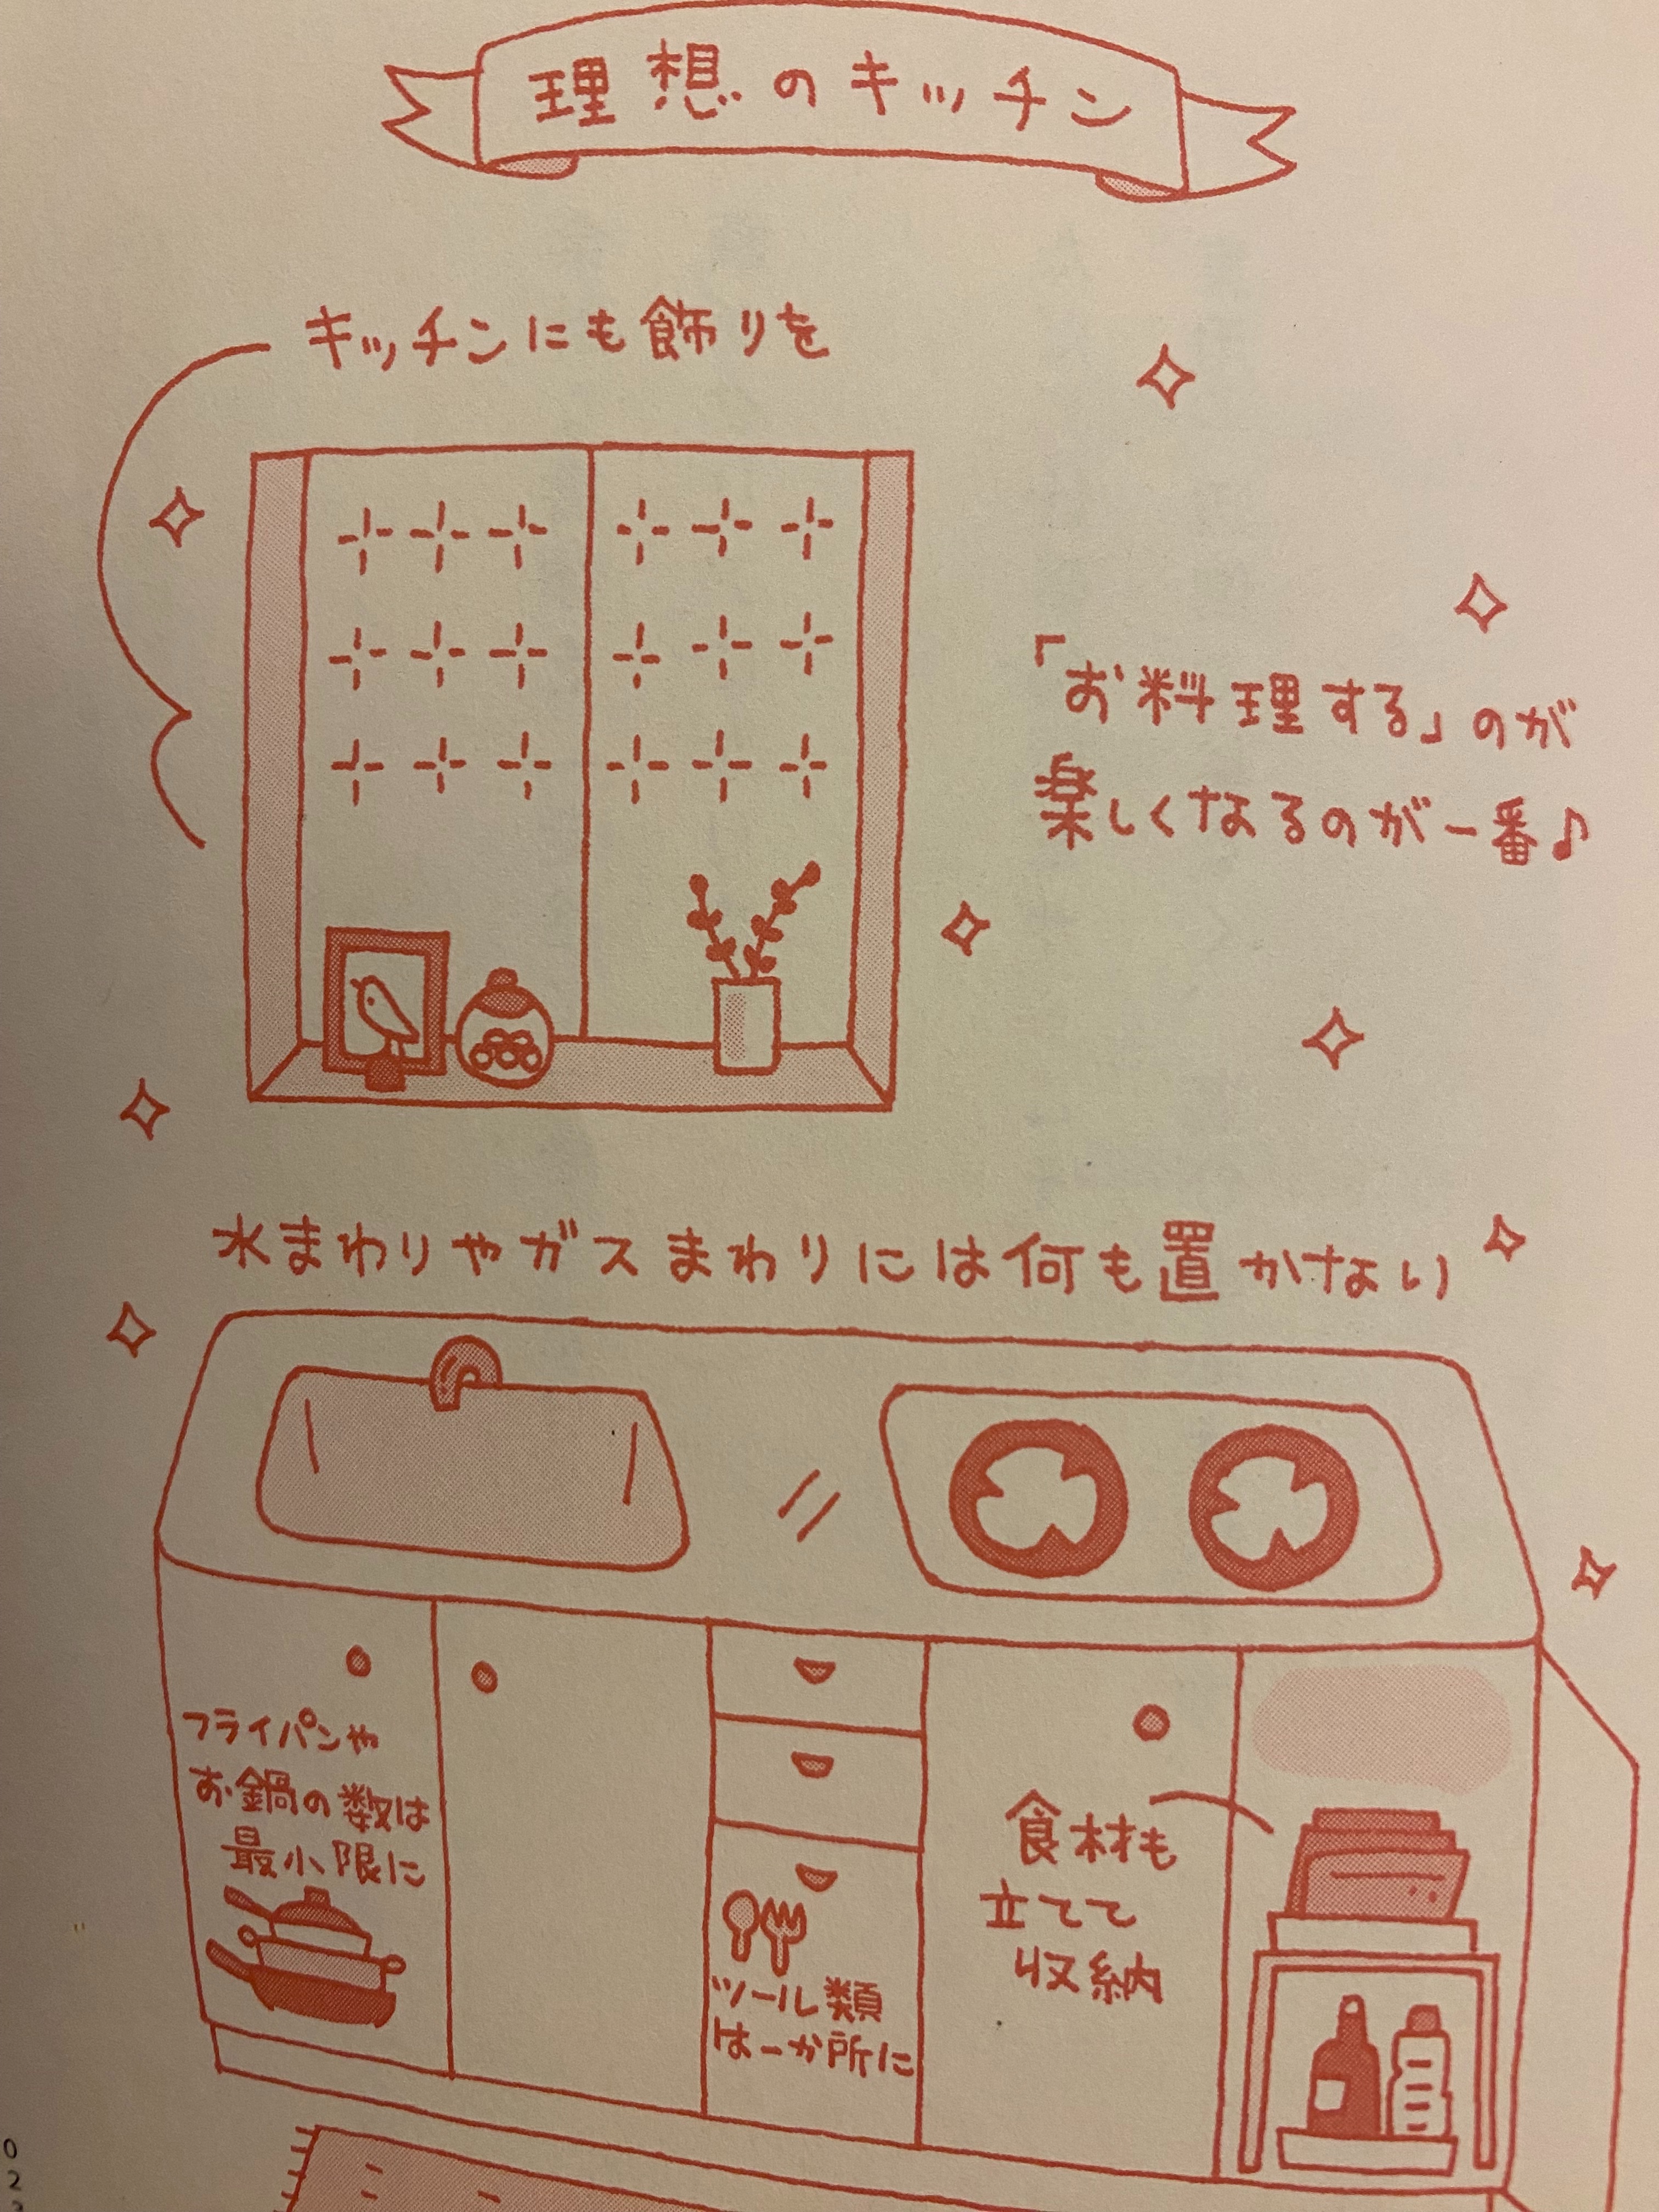 理想のキッチン
キッチンにも飾りを
「お料理する」のが
楽しくなるのが一番♪
水まわりやガスまわりには何も置かない
フライパンや
お鍋の数は
最小限に
ツール類
は一か所に
食材も
立てて
収納
0
2